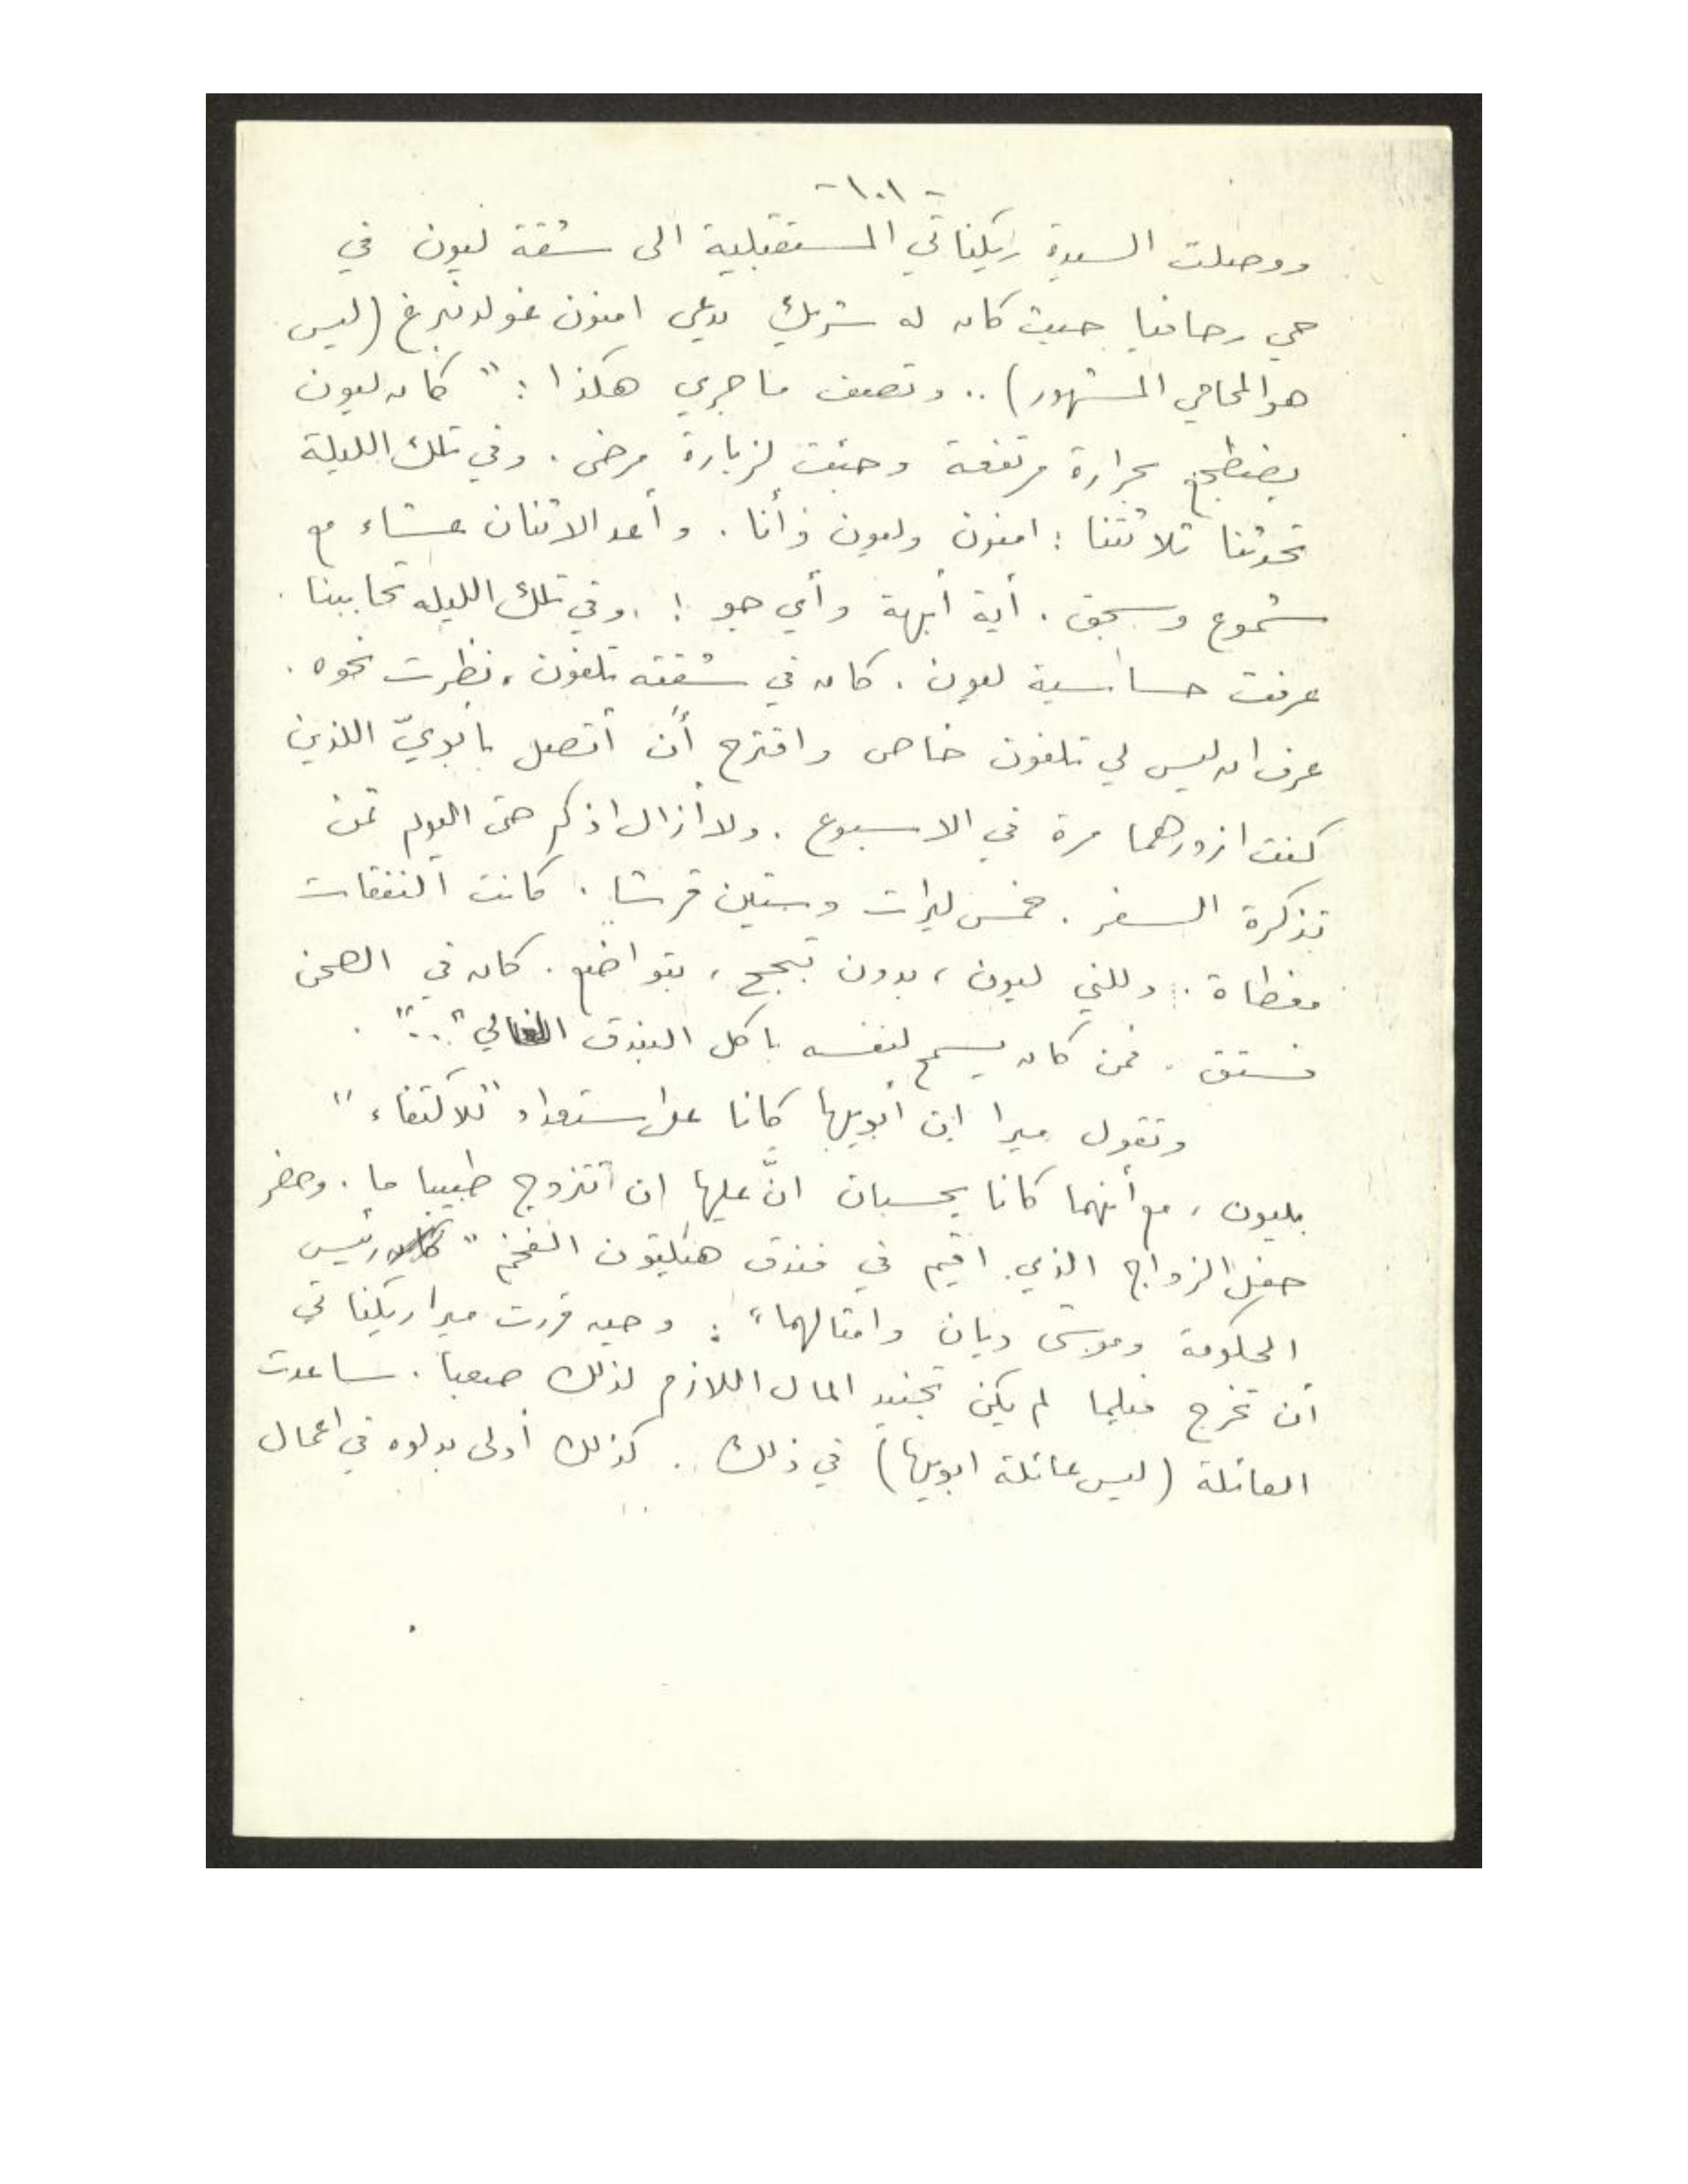 -١٠١-
ووصلت السيدة ريكناتي المستقبلية الى شقة ليون في
حي رحافيا حيث كان له شريك يدعى امنون غولدنبرغ (ليس
هو المحامي المشهور) .. وتصف ما جرى هكذا : " كان ليون
يضطجع بحرارة مرتفعة وجئت لزيارة مرضى . وفي تلك الليلة
تحدثنا ثلاثتنا : امنون وليون وأنا . وأعد الاثنان عشاء مع
شموع وسجق . أية أبهة وأي جو ! . وفي تلك الليله تحاببنا .
عرفت حساسية ليون . كان في شقته تلفون ، نظرت نحوه .
عرف ان ليس لي تلفون خاص واقترح أن أتصل بابويّ اللذين
كنت ازورهما مرة في الاسبوع . ولا أزال اذكر حتى اليوم ثمن
تذكرة السفر . خمس ليرات وستين قرشا . كانت النفقات
مغطاة .. دللني ليون ، بدون تبجح ، بتواضع . كان في الصحن
فستق . فمن كان يسمح لنفسه باكل البندق الغالي " .. " .
وتقول ميرا ان أبويها كانا على استعداد " للاكتفاء "
بليون ، مع أنهما كانا يحسبان انّ عليها ان تتزوج طبيبا ما . وحضر
حفل الزواج الذي اقيم في فندق هيلتون الفخم " رئيس
الحكومة وموشى ديان وامثالهما " . وحين قررت ميرا ريكناتي
أن تخرج فيلما لم يكن تجنيد المال اللازم لذلك صعباً . ساعدت
العائلة (ليس عائلة ابويها) في ذلك . كذلك أدلى بدلوه في اعمال